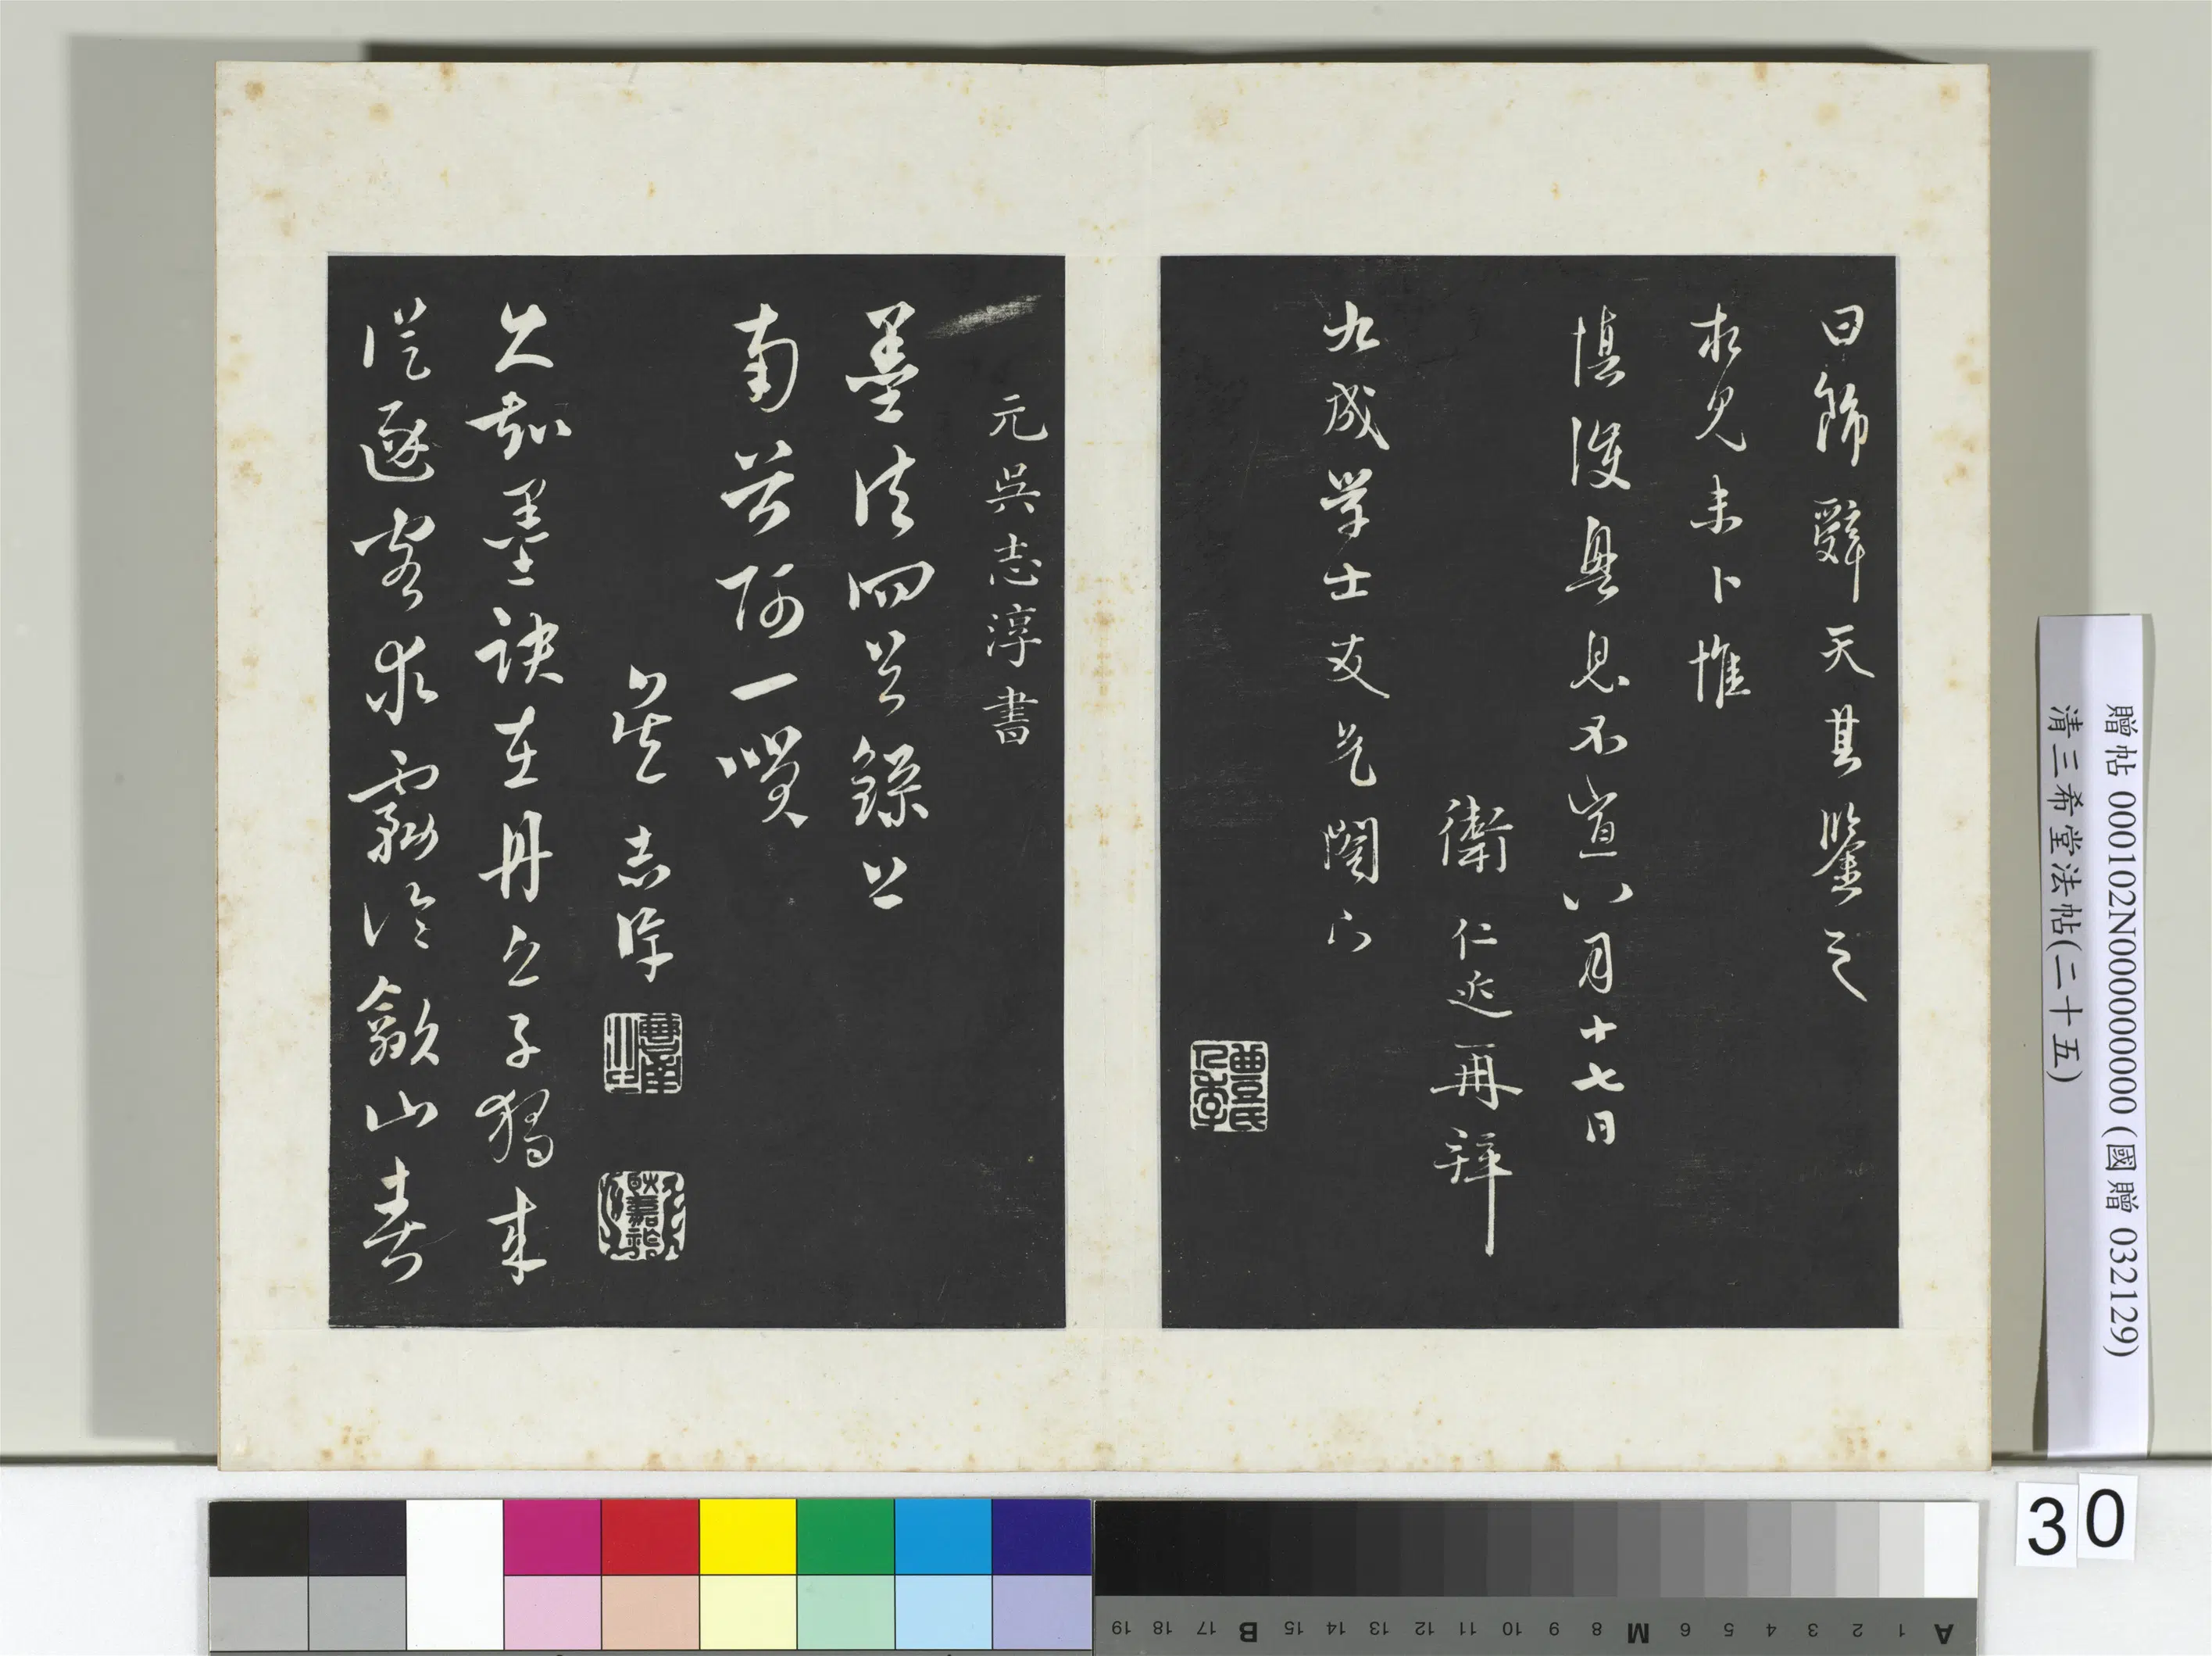 日飾辭天其鑒之
求見未卜惟
慎護興息不宣八月十七日
衛仁近再拜
九成學士友兄閣下
元吳志淳書
墨法四首錄上
南谷師一噗
吳志淳
久知墨訣在丹丘子獨來
從逐客求霧冷歙山春
贈帖 000102N000000000 (國贈 032129)
清三希堂法帖(二十五)
30
A 1 2 3 4 5 6 M 8 9 10 11 12 13 14 15 B 17 18 19